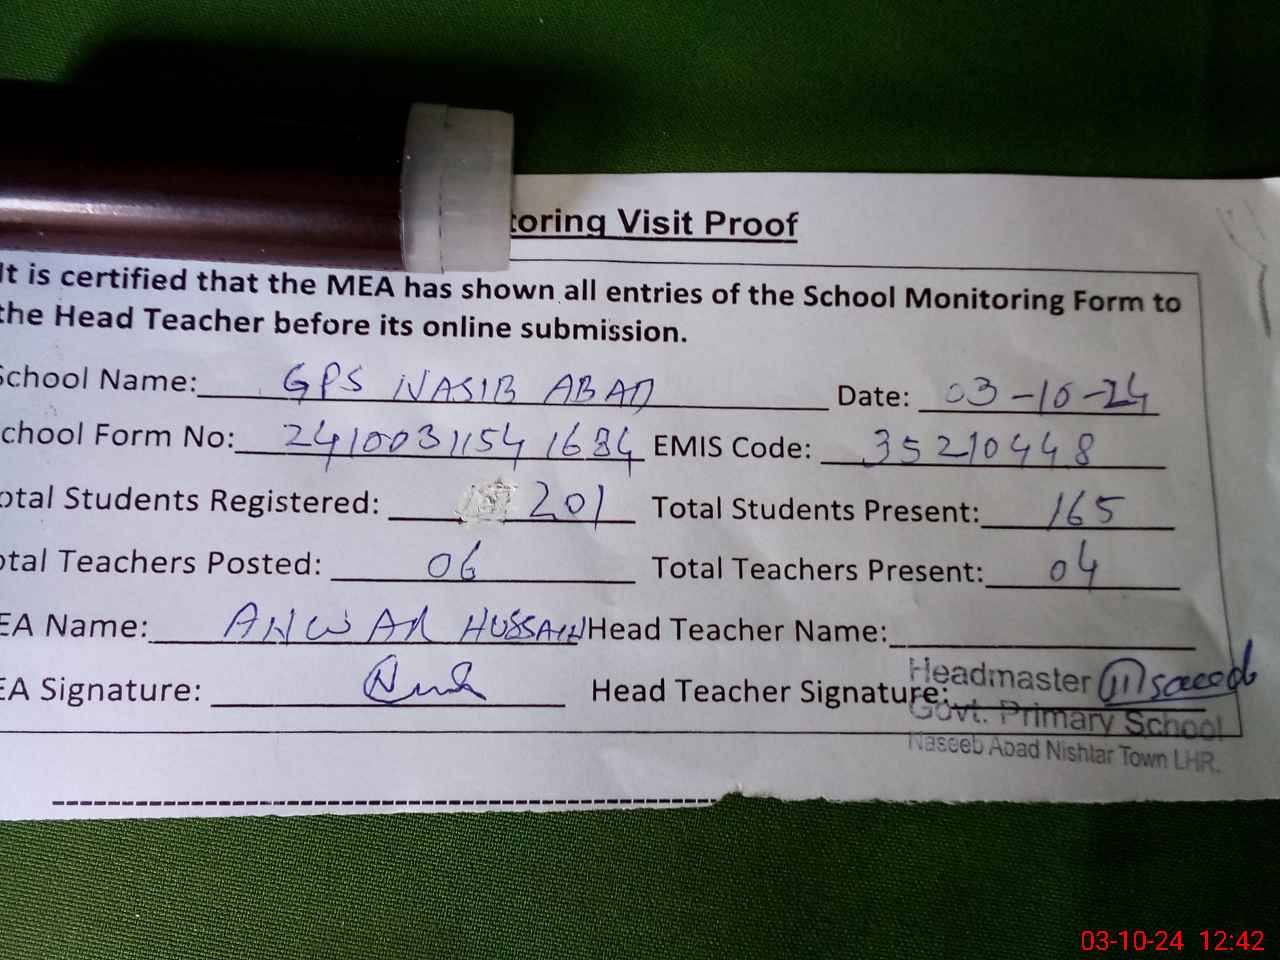 toring Visit Proof
It is certified that the MEA has shown all entries of the School Monitoring Form to
the Head Teacher before its online submission.
School Name: GPS NASIB ABAD Date: 03-10-24
chool Form No: 2410031154 1684 EMIS Code: 35210448
otal Students Registered: 201 Total Students Present: 165
otal Teachers Posted: 06 Total Teachers Present: 04
EA Name: ANWAR HUSSAIN Head Teacher Name:
EA Signature: Head Teacher Signature:
Headmaster saeed
Govt. Primary School
Naseeb Abad Nishtar Town LHR.
03-10-24 12:42